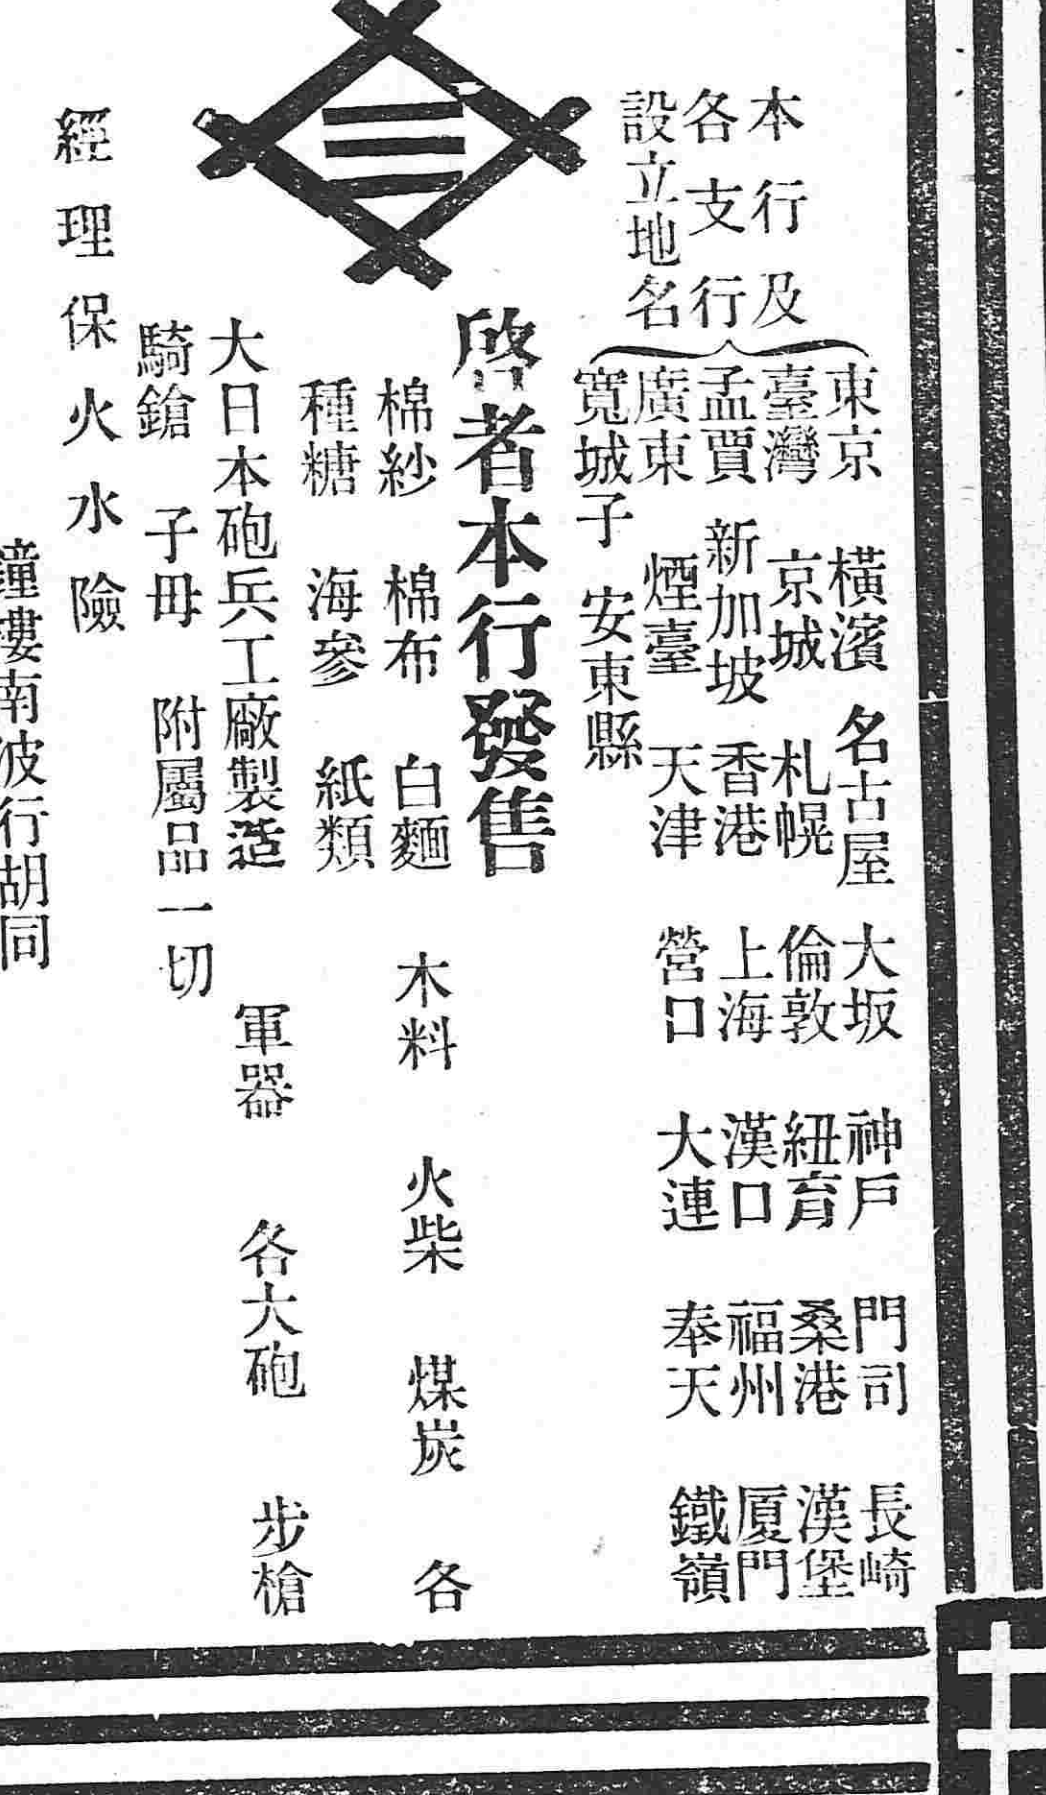 本行及
各支行
設立地名
東京 橫濱 名古屋 大坂 神戶 門司 長崎
臺灣 京城 札幌 倫敦 紐育 桑港 漢堡
孟賈 新加坡 香港 上海 漢口 福州 厦門
廣東 煙臺 天津 營口 大連 奉天 鐵嶺
寬城子 安東縣
啓者本行發售
棉紗 棉布 白麵 木料 火柴 煤炭 各
種糖 海參 紙類
大日本砲兵工廠製造 軍器 各大砲 步槍
騎鎗 子毋 附屬品一切
經理保火水險
三
南波行胡同